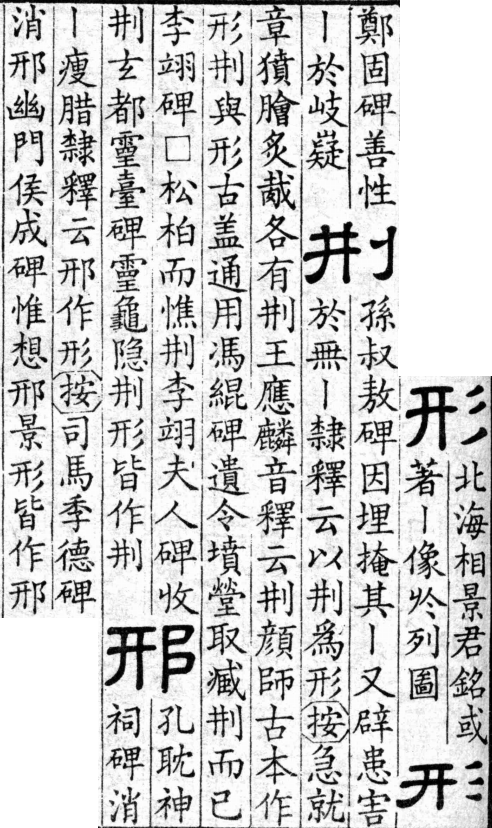 形
北海相景君銘或
著丨像於列圖
形
鄭固碑善性
丨於岐嶷
刑
孫叔敖碑因埋掩其丨又辟患害
於無丨隸釋云以刑爲形按急就
章獖膾炙胾各有刑王應麟音釋云刑顔師古本作
形刑與形古盖通用馮緄碑遺令墳塋取臧刑而已
李翊碑□松柏而憔刑李翊夫人碑收
刑玄都靈臺碑靈龜隐刑形皆作刑
邢
孔耽神
祠碑消
丨瘦腊隸釋云邢作形按司馬季德碑
消邢幽門侯成碑惟想邢景形皆作邢